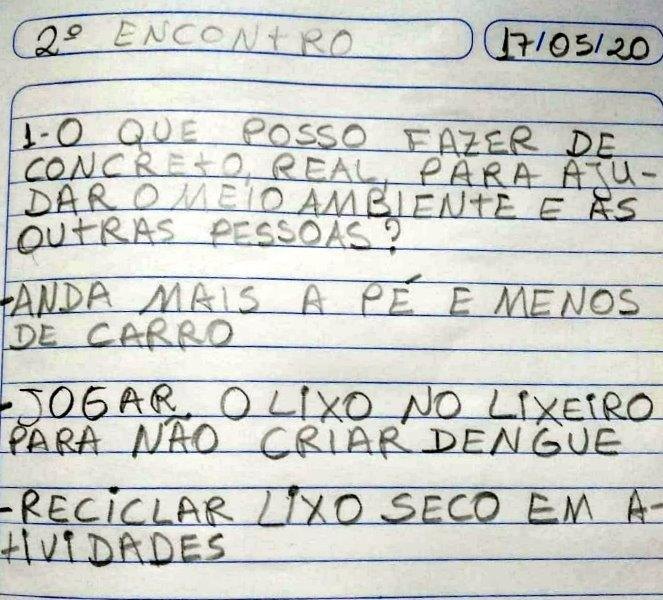 2º ENCONTRO 17/05/20
1-O QUE POSSO FAZER DE
CONCRETO, REAL, PARA AJU-
DAR O MEIO AMBIENTE E AS
OUTRAS PESSOAS?
-ANDA MAIS A PÉ E MENOS
DE CARRO
-JOGAR O LIXO NO LIXEIRO
PARA NÃO CRIAR DENGUE
-RECICLAR LIXO SECO EM A-
TIVIDADES